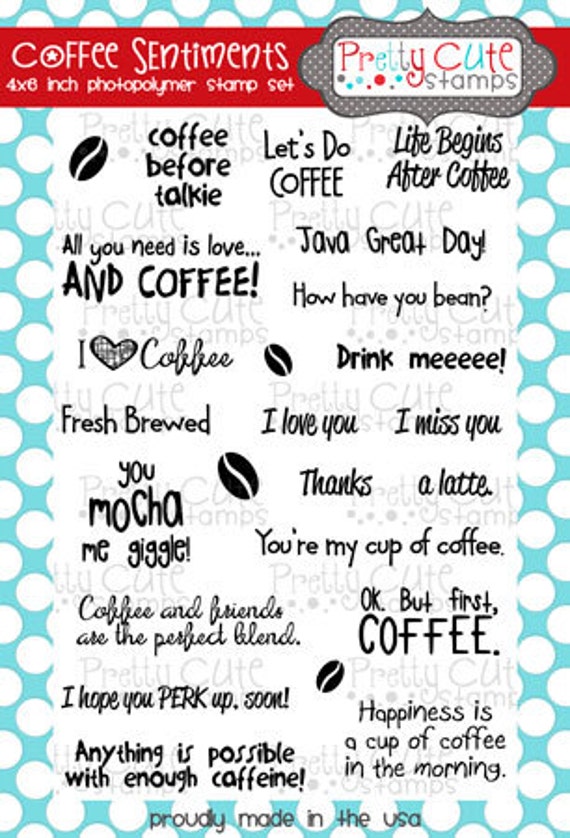 Coffee Sentiments
4x6 inch photopolymer stamp set
Pretty Cute
stamps
coffee
before
talkie
Let's Do
COFFEE
Life Begins
After Coffee
All you need is love...
AND COFFEE!
Java Great Day!
How have you bean?
I Coffee
Drink meeeee!
Fresh Brewed
I love you
I miss you
you
mocha
me giggle!
Thanks
a latte.
You're my cup of coffee.
Coffee and friends
are the perfect blend.
Ok. But first,
COFFEE.
I hope you PERK up, soon!
Happiness is
a cup of coffee
in the morning.
Anything is possible
with enough caffeine!
proudly made in the usa